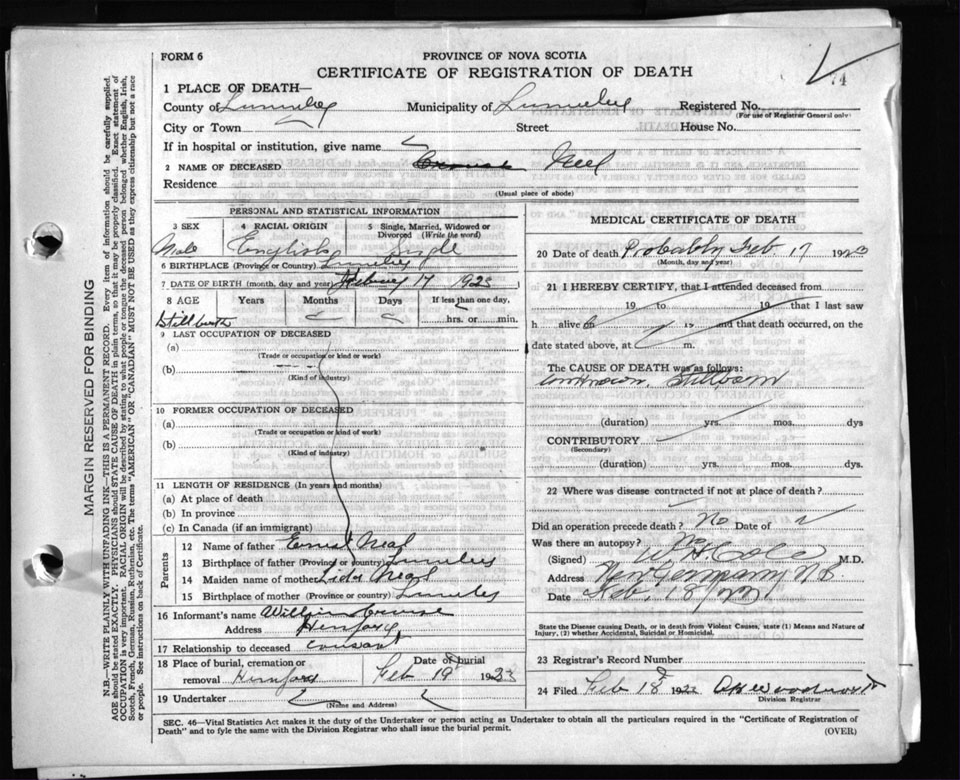 FORM 6
PROVINCE OF NOVA SCOTIA
CERTIFICATE OF REGISTRATION OF DEATH
74
1 PLACE OF DEATH—
County of Lunenburg Municipality of Lunenburg Registered No.
(For use of Registrar General only)
City or Town Street House No.
If in hospital or institution, give name
2 NAME OF DECEASED Neel
Residence
(Usual place of abode)
PERSONAL AND STATISTICAL INFORMATION
3 SEX 4 RACIAL ORIGIN 5 Single, Married, Widowed or Divorced (Write the word)
Male English Single
6 BIRTHPLACE (Province or Country) Lunenburg
7 DATE OF BIRTH (month, day and year) February 17 1923
8 AGE Years Months Days If less than one day,
Stillbirth hrs. or min.
9 LAST OCCUPATION OF DECEASED
(a)
(Trade or occupation or kind or work)
(b)
(Kind of industry)
10 FORMER OCCUPATION OF DECEASED
(a)
(Trade or occupation or kind of work)
(b)
(Kind of industry)
11 LENGTH OF RESIDENCE (In years and months)
(a) At place of death
(b) In province
(c) In Canada (if an immigrant)
Parents
12 Name of father Ernest Neal
13 Birthplace of father (Province or country) Lunenburg
14 Maiden name of mother Lida
15 Birthplace of mother (Province or country) Lunenburg
16 Informant's name William
Address Hemford
17 Relationship to deceased cousin
18 Place of burial, cremation or Date of burial
removal Hemford Feb 19 1923
19 Undertaker
(Name and Address)
MEDICAL CERTIFICATE OF DEATH
20 Date of death Probably Feb 17 1923
(Month, day and year)
21 I HEREBY CERTIFY, that I attended deceased from
19 to 19 that I last saw
h alive on 19 and that death occurred, on the
date stated above, at m.
The CAUSE OF DEATH was as follows:
Unknown, Stillborn
(duration) yrs. mos. dys
CONTRIBUTORY
(Secondary)
(duration) yrs. mos. dys.
22 Where was disease contracted if not at place of death?
Did an operation precede death? No Date of
Was there an autopsy? No
(Signed) W.H. Cole M.D.
Address New Germany N.S.
Date Feb. 18/
State the Disease causing Death, or in death from Violent Causes, state (1) Means and Nature of Injury, (2) whether Accidental, Suicidal or Homicidal.
23 Registrar's Record Number
24 Filed Feb 18 192
Division Registrar
SEC. 46—Vital Statistics Act makes it the duty of the Undertaker or person acting as Undertaker to obtain all the particulars required in the "Certificate of Registration of
Death" and to fyle the same with the Division Registrar who shall issue the burial permit.
(OVER)
MARGIN RESERVED FOR BINDING
N.B.—WRITE PLAINLY WITH UNFADING INK—THIS IS A PERMANENT RECORD. Every item of information should be carefully supplied.
AGE should be stated EXACTLY. PHYSICIANS should STATE CAUSE OF DEATH in plain terms, so that it may be properly classified. Exact statement of
OCCUPATION is very important. RACIAL ORIGIN will be described by stating to what people or tongue the deceased person belonged whether English, Irish,
Scotch, French, German, Russian, Ruthenian, etc. The terms "AMERICAN" OR "CANADIAN" MUST NOT BE USED as they express citizenship but not a race
or people. See instructions on back of Certificate.